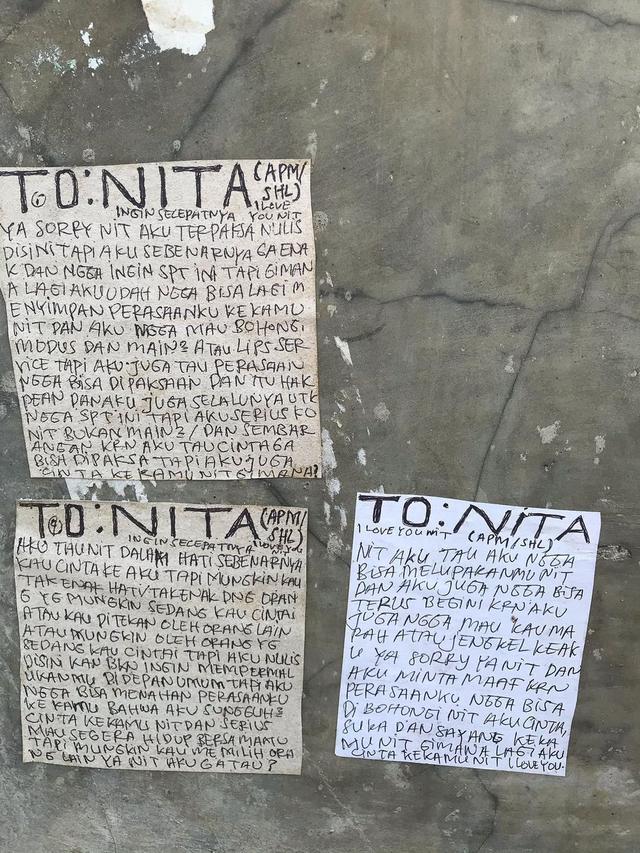 TO: NITA (APM/
SHL)
INGIN SECEPATNYA I LOVE
YOU NIT
YA SORRY NIT AKU TERPAKSA NULIS
DISINI TAPI AKU SEBENARNYA GA ENA
K DAN NGGA INGIN SPT INI TAPI GIMAN
A LAGI AKU UDAH NGGA BISA LAGI M
ENYIMPAN PERASAANKU KE KAMU
NIT DAN AKU NGGA MAU BOHONGI
MODUS DAN MAIN2 ATAU LIPS SER
VICE TAPI AKU JUGA TAU PERASAAN
NGGA BISA DI PAKSAAN DAN ITU HAK
DAN AKU JUGA SELALUNYA UTK
NGGA SPT INI TAPI AKU SERIUS KO
NIT BUKAN MAIN2/DAN SEMBAR
ANGAN KRN AKU TAU CINTA GA
BISA DI PAKSA TAPI AKU JUGA
CINTA KE KAMU NIT GIMANA?
TO: NITA (APM/
SHL)
INGIN SECEPATNYA I LOVE YOU
AKU TAU NIT DALAM HATI SEBENARNYA
KAU CINTA KE AKU TAPI MUNGKIN KAU
TAK ENAK HATI/TAK ENAK DNG ORAN
G YG MUNGKIN SEDANG KAU CINTAI
ATAU KAU DI TEKAN OLEH ORANG LAIN
ATAU MUNGKIN OLEH ORANG YG
SEDANG KAU CINTAI TAPI AKU NULIS
DISINI KAN BKN INGIN MEMPERMAL
UKANMU DI DEPAN UMUM TAPI AKU
NGGA BISA MENAHAN PERASAANKU
KE KAMU BAHWA AKU SUNGGUH2
CINTA KE KAMU NIT DAN SERIUS
MAU SEGERA HIDUP BERSAMAMU
TAPI MUNGKIN KAU MEMILIH ORA
NG LAIN YA NIT AKU GA TAU?
TO: NITA
I LOVE YOU NIT (APM/SHL)
NIT AKU TAU AKU NGGA
BISA MELUPAKANMU NIT
DAN AKU JUGA NGGA BISA
TERUS BEGINI KRN AKU
JUGA NGGA MAU KAU MA
RAH ATAU JENGKEL KE AK
U YA SORRY YA NIT DAN
AKU MINTA MAAF KRN
PERASAANKU NGGA BISA
DI BOHONGI NIT AKU CINTA,
SUKA DAN SAYANG KE KA
MU NIT GIMANA LAGI AKU
CINTA KE KAMU NIT I LOVE YOU.